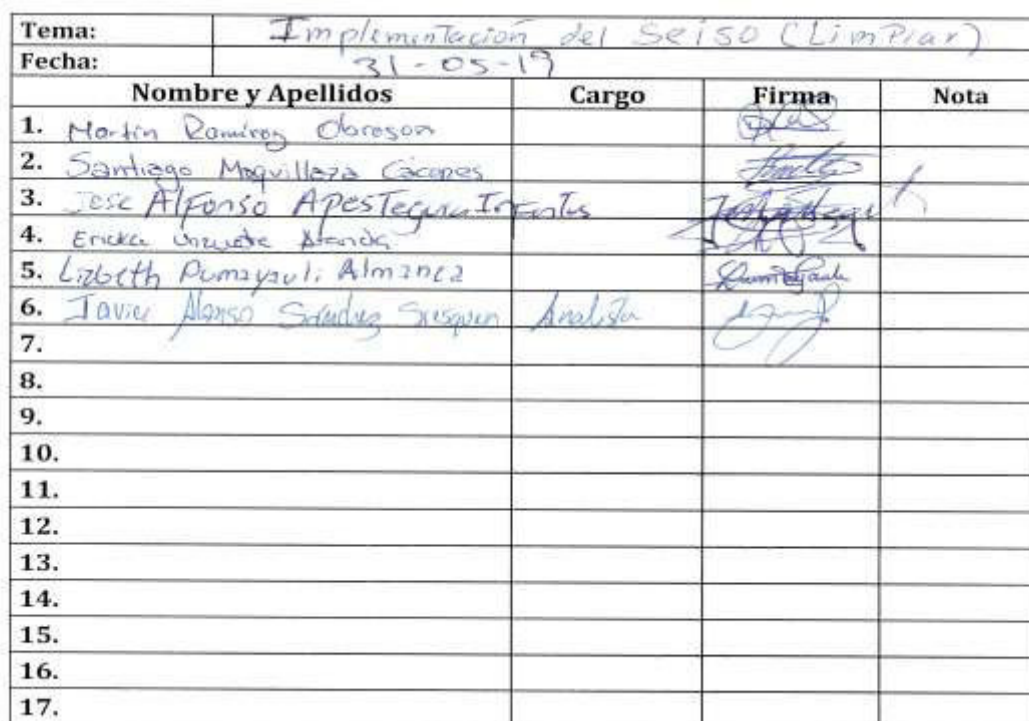 Tema: Implementación del Seiso (Limpiar)
Fecha: 31-05-19
Nombre y Apellidos Cargo Firma Nota
1. Martin Ramirez
2. Santiago Maquillaza Caceres
3. Jose Alfonso Apestegura Infantes
4. Ericka
5. Lizbeth Pumayauli Almanza
6. Javier Alonso Sanchez Susquen Analista
7.
8.
9.
10.
11.
12.
13.
14.
15.
16.
17.